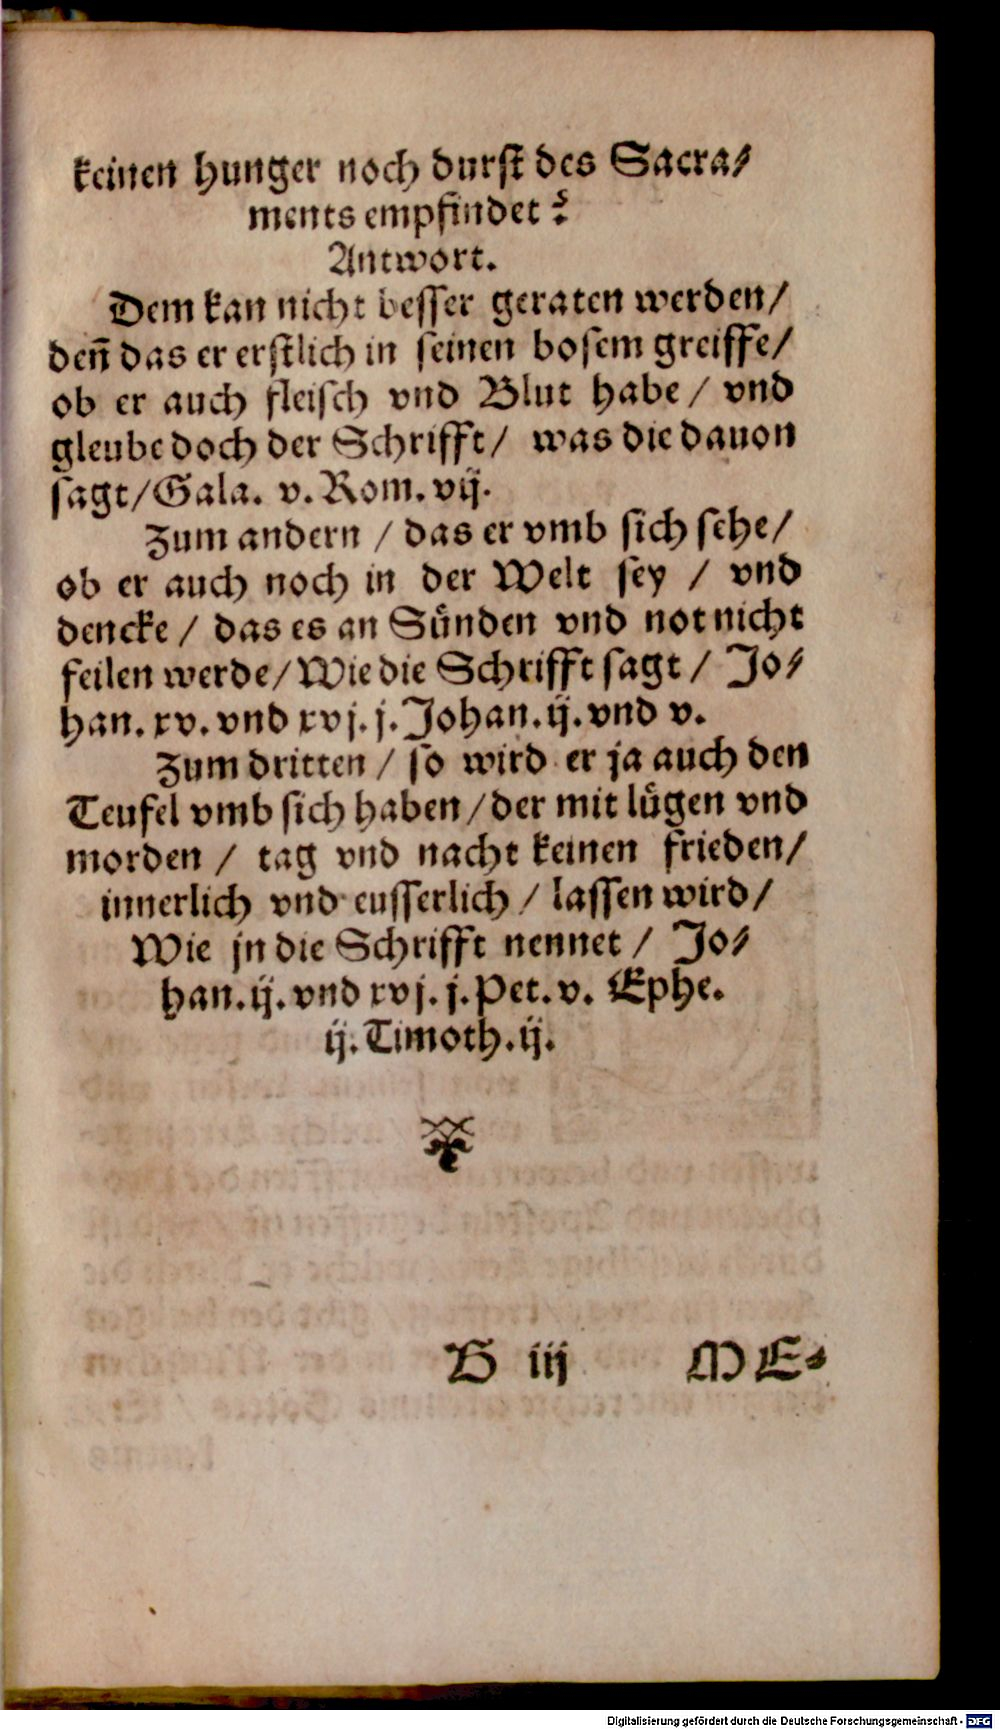 keinen hunger noch durst des Sacra⸗
ments empfindet?
Antwort.
Dem kan nicht besser geraten werden/
deñ das er erstlich in seinen bosem greiffe/
ob er auch fleisch vnd Blut habe/ vnd
gleube doch der Schrifft/ was die dauon
sagt/Gala. v. Rom. vij.
Zum andern / das er vmb sich sehe/
ob er auch noch in der Welt sey / vnd
dencke / das es an Sünden vnd not nicht
feilen werde/Wie die Schrifft sagt / Jo⸗
han. xv. vnd xvj. j. Johan. ij. vnd v.
Zum dritten / so wird er ja auch den
Teufel vmb sich haben/der mit lügen vnd
morden / tag vnd nacht keinen frieden/
innerlich vnd eusserlich / lassen wird/
Wie jn die Schrifft nennet / Jo⸗
han. ij. vnd xvj. j. Pet. v. Ephe.
ij. Timoth. ij.
B iij ME⸗
Digitalisierung gefördert durch die Deutsche Forschungsgemeinschaft - DFG